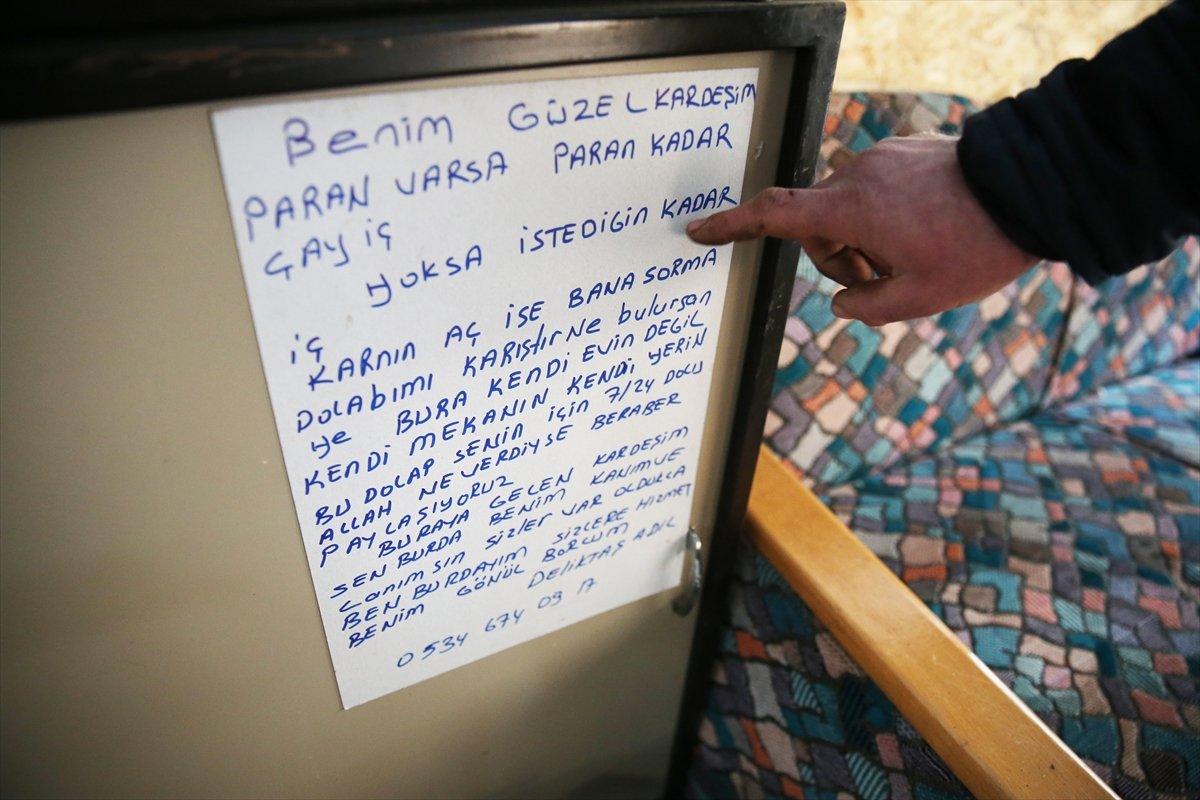 Benim GÜZEL KARDEŞİM
PARAN VARSA PARAN KADAR
ÇAY İÇ
YOKSA İSTEDİGİN KADAR
İÇ
KARNIN AÇ İSE BANA SORMA
DOLABIMI KARIŞTIR Ne buluRSAN
Ye BURA KENDİ EVİN DEĞİL
KENDİ MEKANIN KENDİ YERİN
BU DOLAP SENİN İÇİN 7/24 DOLU
ALLAH NE VERDİYSE BERABER
PAYLAŞIYORUZ
BURAYA GELEN KARDEŞİM
SEN BURDA BENİM KANIMVE
CanımsIn SİZLER VAR OLDUKCA
BEN BURDAYIM SİZLERE HİZMET
BENİM GÖNÜL BORCUM
DELİKTAŞ ADİL
0534 674 09 17